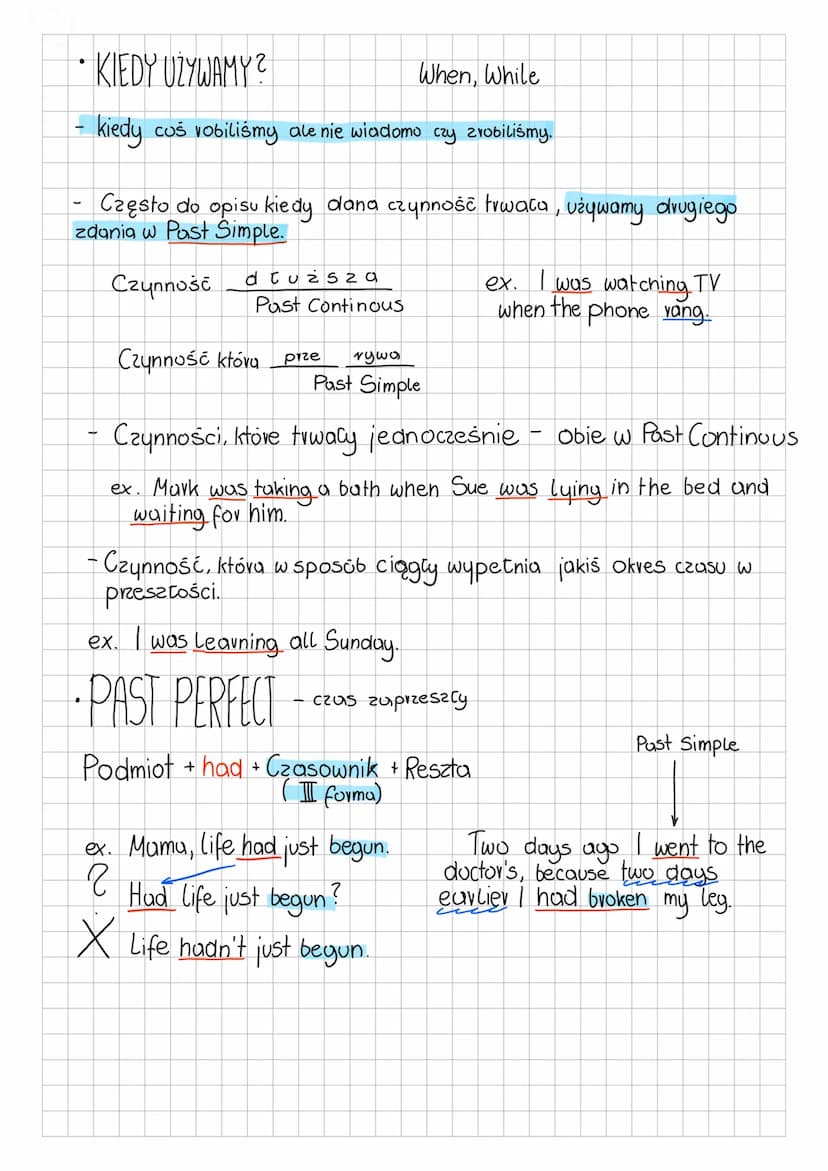 • KIEDY UŻYWAMY?
When, While
- kiedy coś robiliśmy ale nie wiadomo czy zrobiliśmy.
- Często do opisu kiedy dana czynność trwała, używamy drugiego
zdania w Past Simple.
Czynność dłuższa
Past Continous
ex. I was watching TV
when the phone rang.
Czynność która prze rywa
Past Simple
- Czynności, które trwały jednocześnie - obie w Past Continous
ex. Mark was taking a bath when Sue was lying in the bed and
waiting for him.
- Czynność, która w sposób ciągły wypełnia jakiś okres czasu w
przeszłości.
ex. I was learning all Sunday.
• PAST PERFECT - czas zaprzeszły
Podmiot + had + Czasownik + Reszta
(III forma)
ex. Mama, life had just begun.
? Had life just begun?
X Life hadn't just begun.
Past Simple
Two days ago I went to the
doctor's, because two days
earlier I had broken my leg.